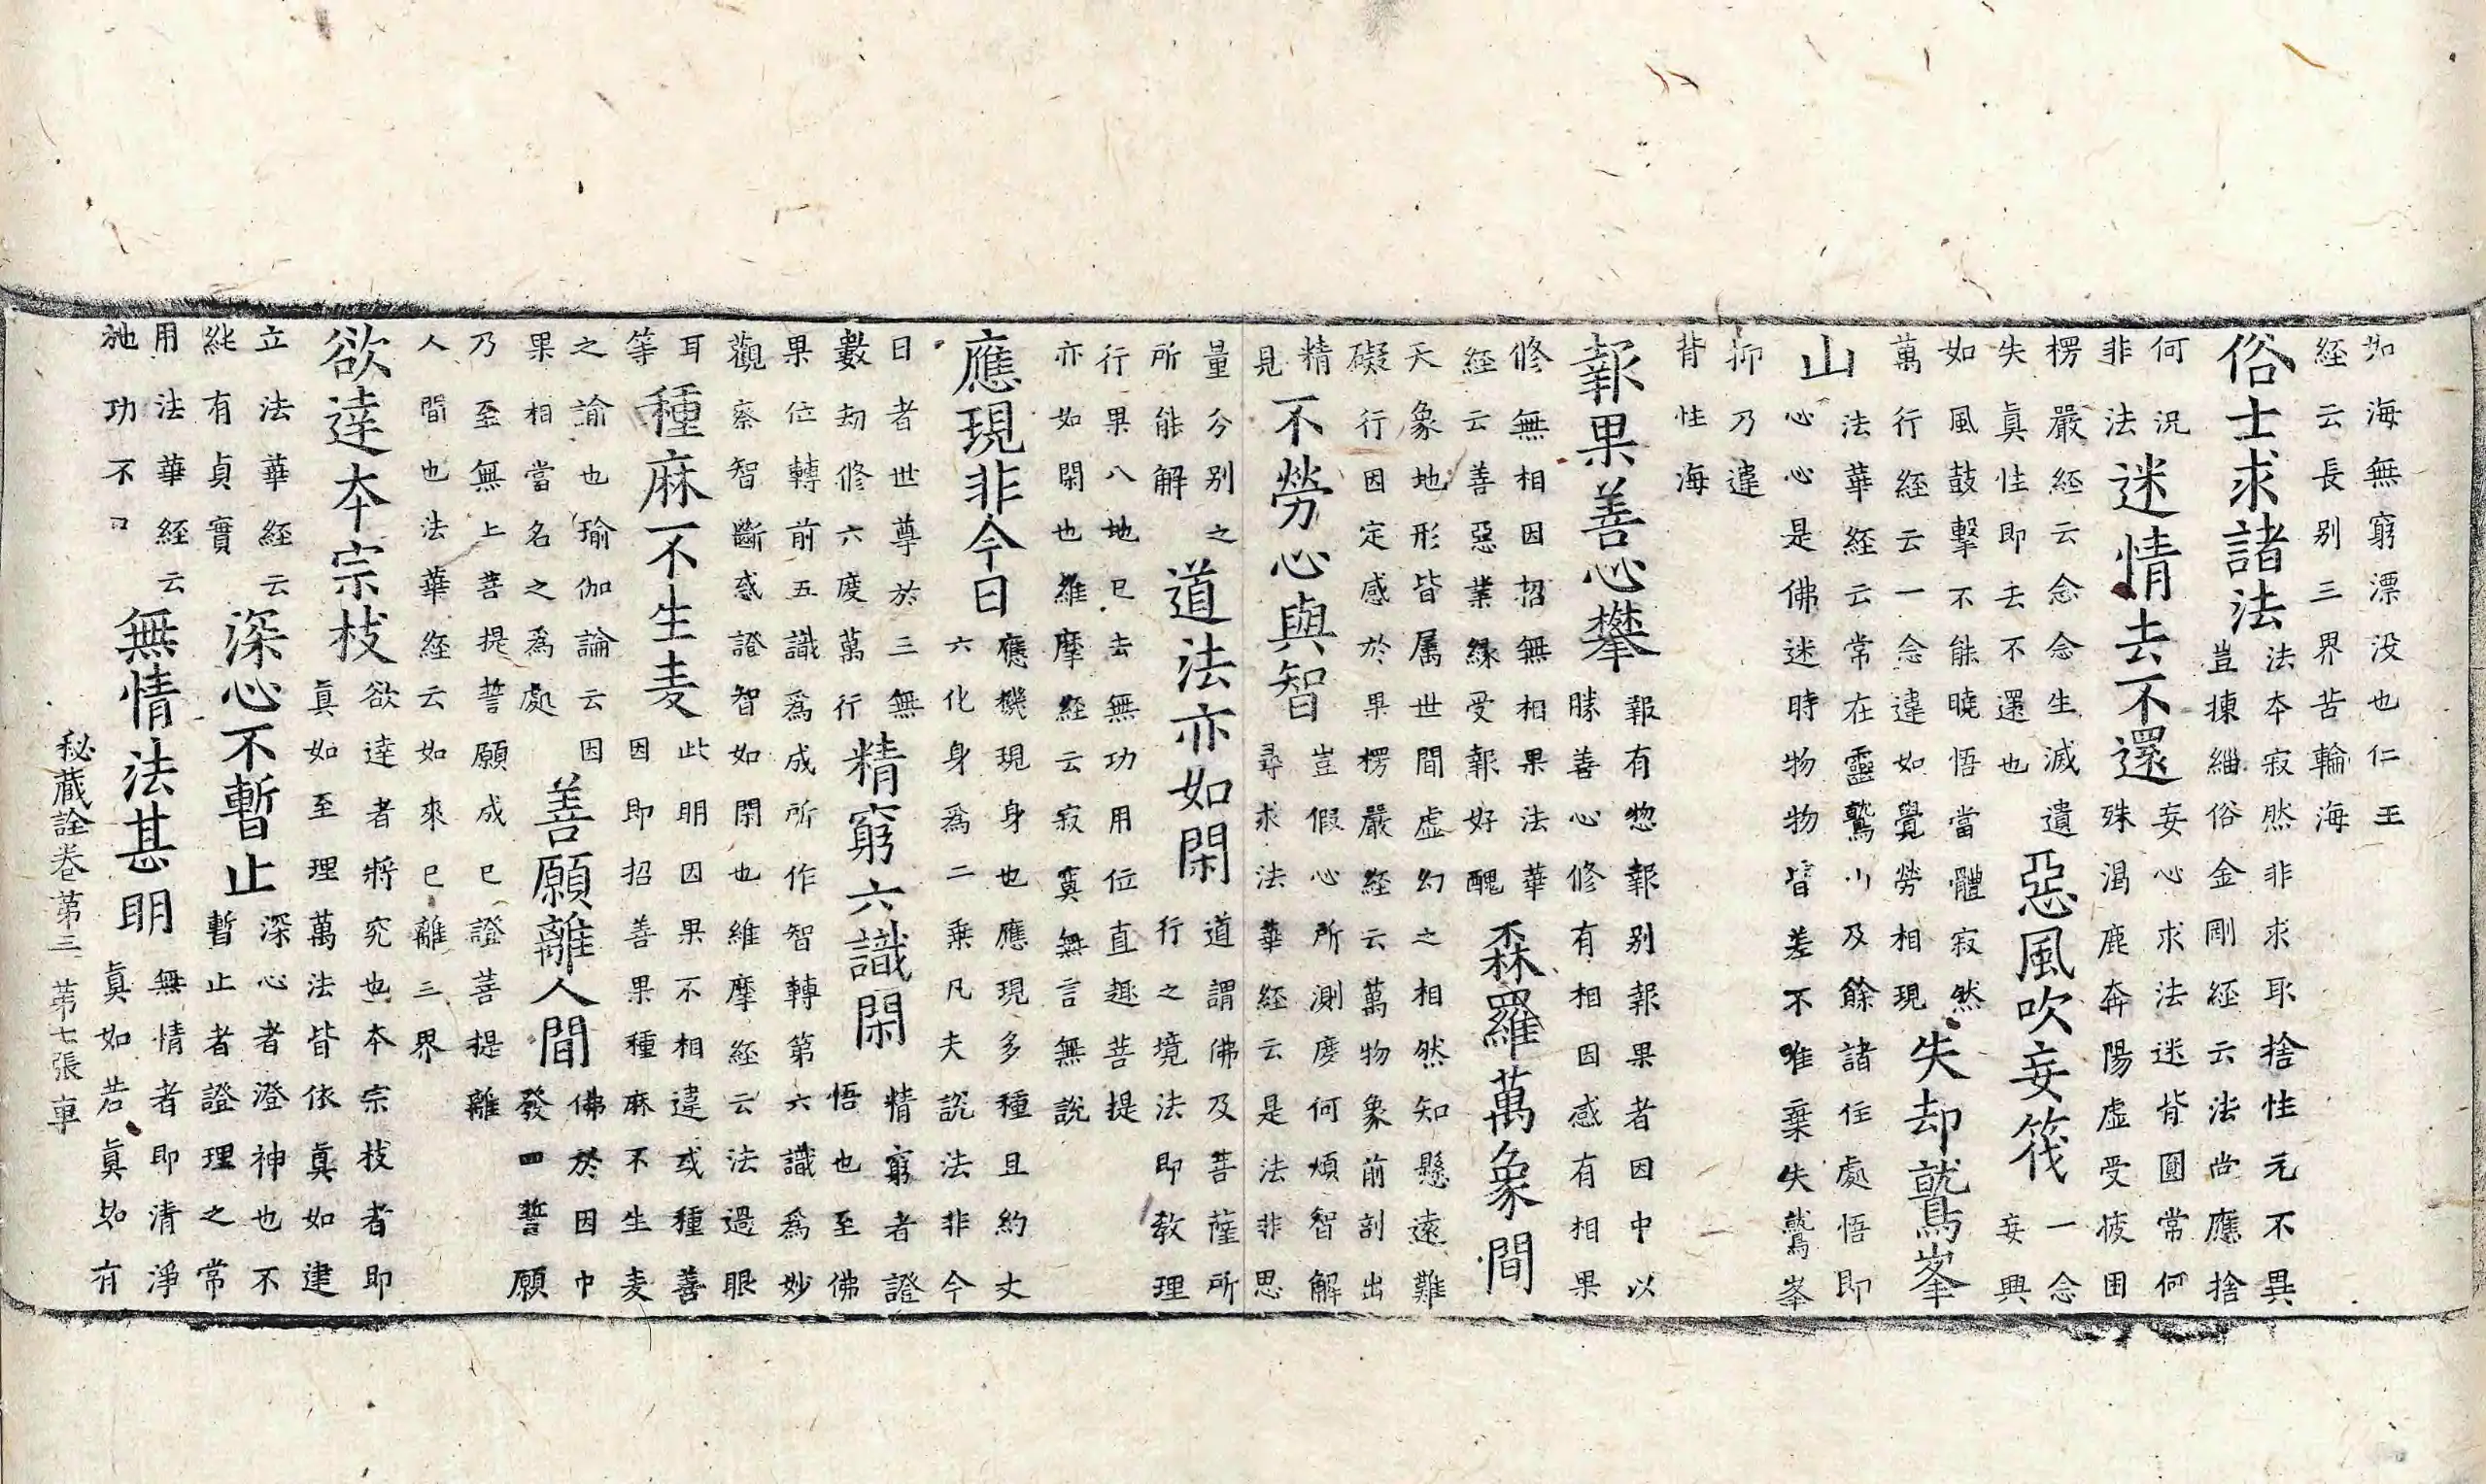 如海無窮漂没也仁王
経云長别三界苦輪海
俗士求諸法
法本寂然非求取捨性元不異
豈揀緇俗金剛経云法尚應捨
何況
非法
迷情去不還
妄心求法迷背圓常何
殊渴鹿奔陽虚受疲困
楞嚴経云念念生滅遺
失真性即去不還也
惡風吹妄筏
一念
妄興
如風鼓擊不能曉悟當體寂然
萬行経云一念違如覺勞相現
失却鷲峯
山
法華経云常在靈鷲山及餘諸住處悟即
心心心是佛迷時物物皆差不唯棄失鷲峯
抑乃違
背性海
報果善心攀
報有惣報别報果者因中以
勝善心修有相因感有相果
修無相因招無相果法華
経云善惡業縁受報好醜
森羅萬象間
天象地形皆属世間虚幻之相然知懸遠難
礙行因定感於果楞嚴経云萬物象前剖出
精
見
不勞心與智
豈假心所測度何煩智解
尋求法華経云是法非思
量分别之
所能解
道法亦如閑
道謂佛及菩薩所
行之境法即教理
行果八地已去無功用位直趣菩提
亦如閑也維摩経云寂寞無言無説
應現非今日
應機現身也應現多種且約丈
六化身為二乗凡夫説法非今
日者世尊於三無
數劫修六度萬行
精窮六識閑
精窮者證
悟也至佛
果位轉前五識為成所作智轉第六識為妙
觀察智斷惑證智如閑也維摩経云法過眼
耳
等
種麻不生麦
此明因果不相違或種善
因即招善果種麻不生麦
之諭也瑜伽論云因
果相當名之為處
善願離人間
佛於因中
發四誓願
乃至無上菩提誓願成已證菩提離
人間也法華経云如來已離三界
欲達本宗枝
欲達者將究也本宗枝者即
真如至理萬法皆依真如建
立法華経云
純有貞實
深心不暫止
深心者澄神也不
暫止者證理之常
用法華経云
功不
無情法甚明
無情者即清淨
真如若真如有
秘藏詮卷第三 第七張 車